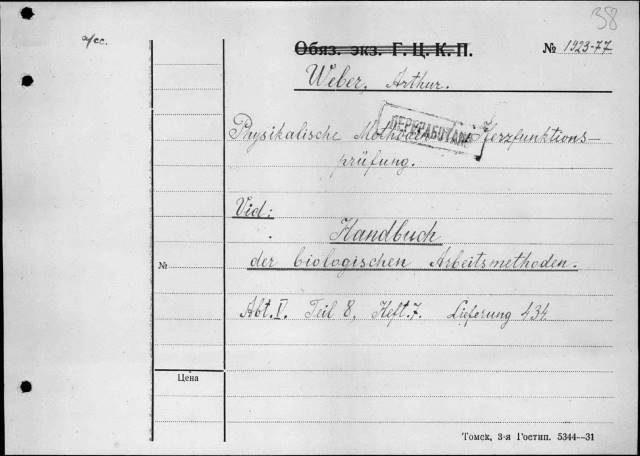 38
a/cc.
Обяз. экз. Г. Ц. К. П.
№ 1923-77
Weber, Arthur.
ПЕРЕРАБОТАНО
Physikalische Methoden Herzfunktions-
prüfung.
Vid:
Handbuch
der biologischen Arbeitsmethoden.
№
Abt. V. Teil 8, Heft. 7. Lieferung 434
Цена
Томск, 3-я Гостип. 5344—31